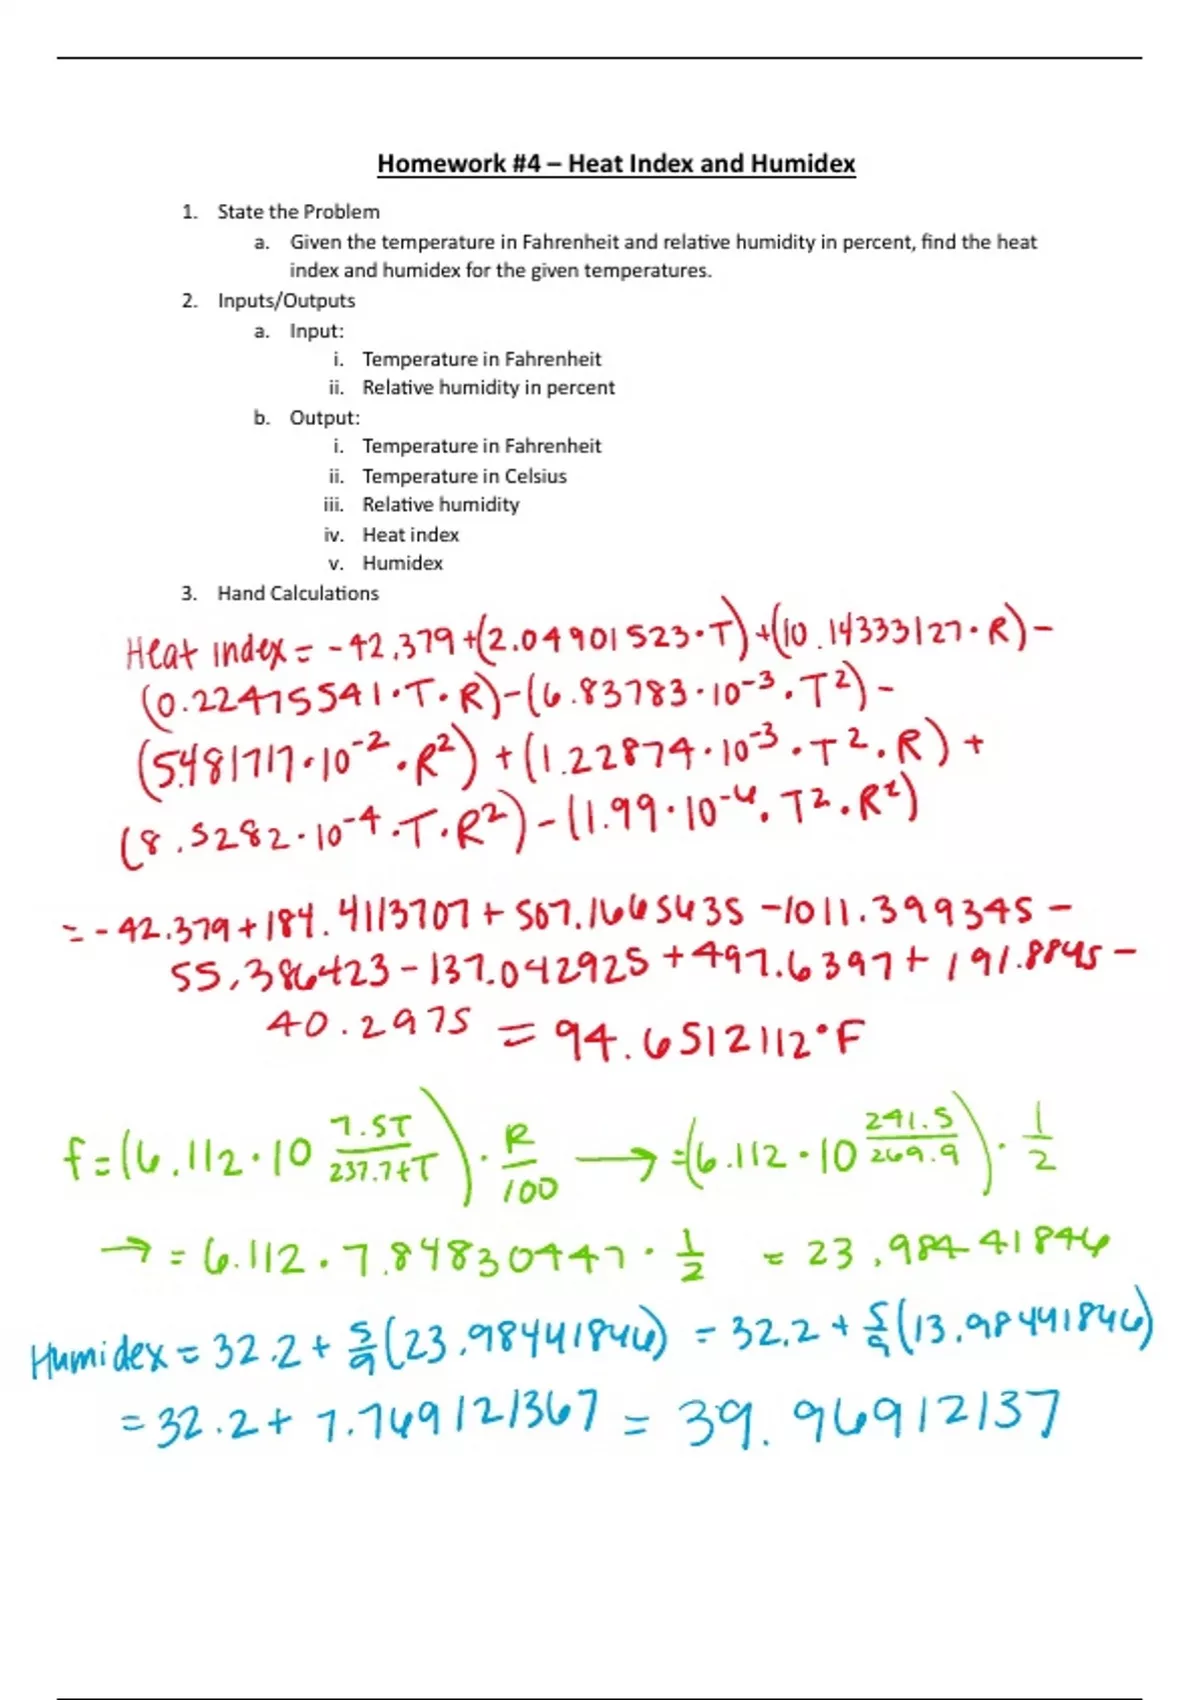 Homework #4 – Heat Index and Humidex
1. State the Problem
a. Given the temperature in Fahrenheit and relative humidity in percent, find the heat
index and humidex for the given temperatures.
2. Inputs/Outputs
a. Input:
i. Temperature in Fahrenheit
ii. Relative humidity in percent
b. Output:
i. Temperature in Fahrenheit
ii. Temperature in Celsius
iii. Relative humidity
iv. Heat index
v. Humidex
3. Hand Calculations
Heat index = -42.379 + (2.04901523·T) + (10.14333127·R) -
(0.22475541·T·R) - (6.83783·10⁻³·T²) -
(5.481717·10⁻²·R²) + (1.22874·10⁻³·T²·R) +
(8.5282·10⁻⁴·T·R²) - (1.99·10⁻⁶·T²·R²)
= -42.379 + 184.4113707 + 507.1665635 - 1011.399345 -
55.386423 - 137.042925 + 497.6397 + 191.8845 -
40.2975 = 94.6512112°F
f = (6.112·10^(7.5T/(237.7+T)) · R/100 → = (6.112·10^(241.5/269.9)) · 1/2
→ = 6.112 · 7.84830447 · 1/2 = 23.98441846
Humidex = 32.2 + 5/9 (23.98441846) = 32.2 + 5/9 (13.98441846)
= 32.2 + 7.769121367 = 39.96912137